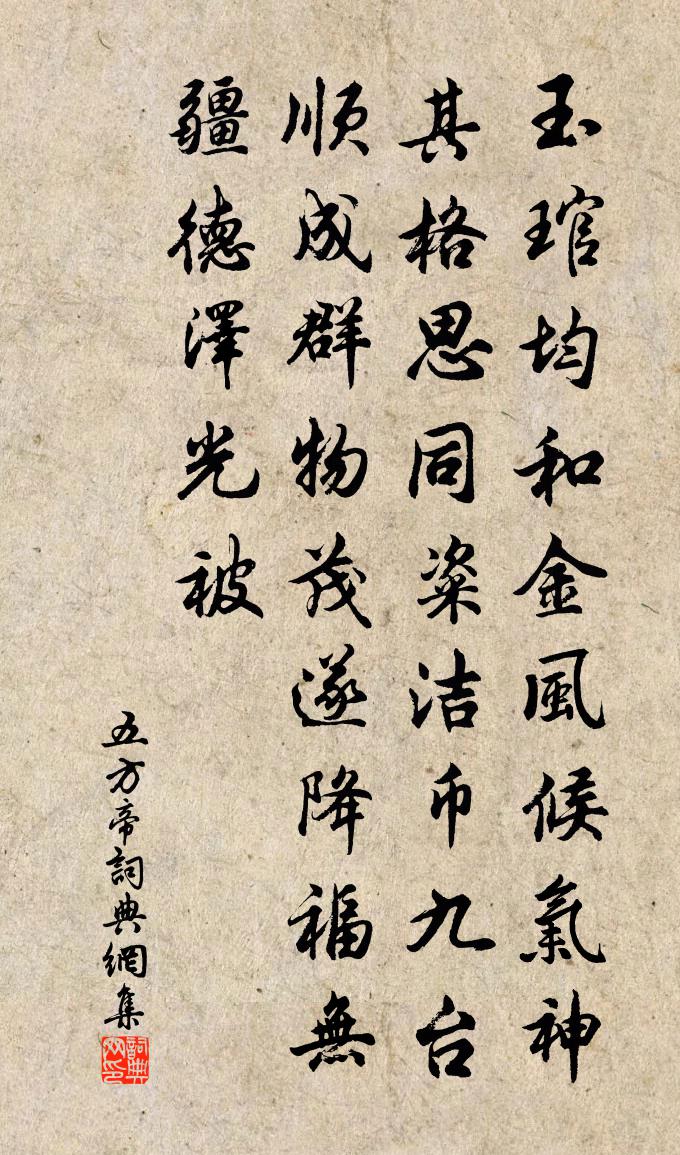 玉琯均和金風候氣神
其格思同粢洁币九台
順成群物茂遂降福無
疆德澤光被
五方帝詞典網集
詞典網印